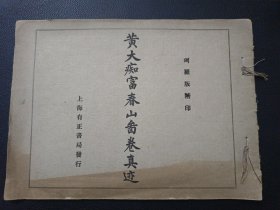 珂羅版精印
黃大痴富春山啚卷真迹
上海有正書局發行